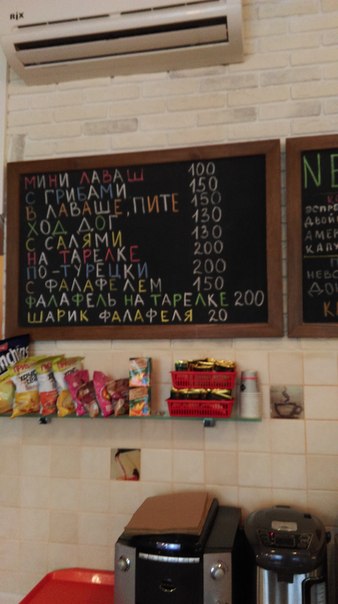 njx
МИНИ ЛАВАШ 100
С ГРИБАМИ 150
В ЛАВАШЕ, ПИТЕ 150
ХОД ДОГ 130
С САЛЯМИ 130
НА ТАРЕЛКЕ 200
ПО-ТУРЕЦКИ 200
С ФАЛАФЕЛЕМ 150
ФАЛАФЕЛЬ НА ТАРЕЛКЕ 200
ШАРИК ФАЛАФЕЛЯ 20
NE
ЭСПР
ДВОЙ
АМЕР
КАПУ
НЕВС